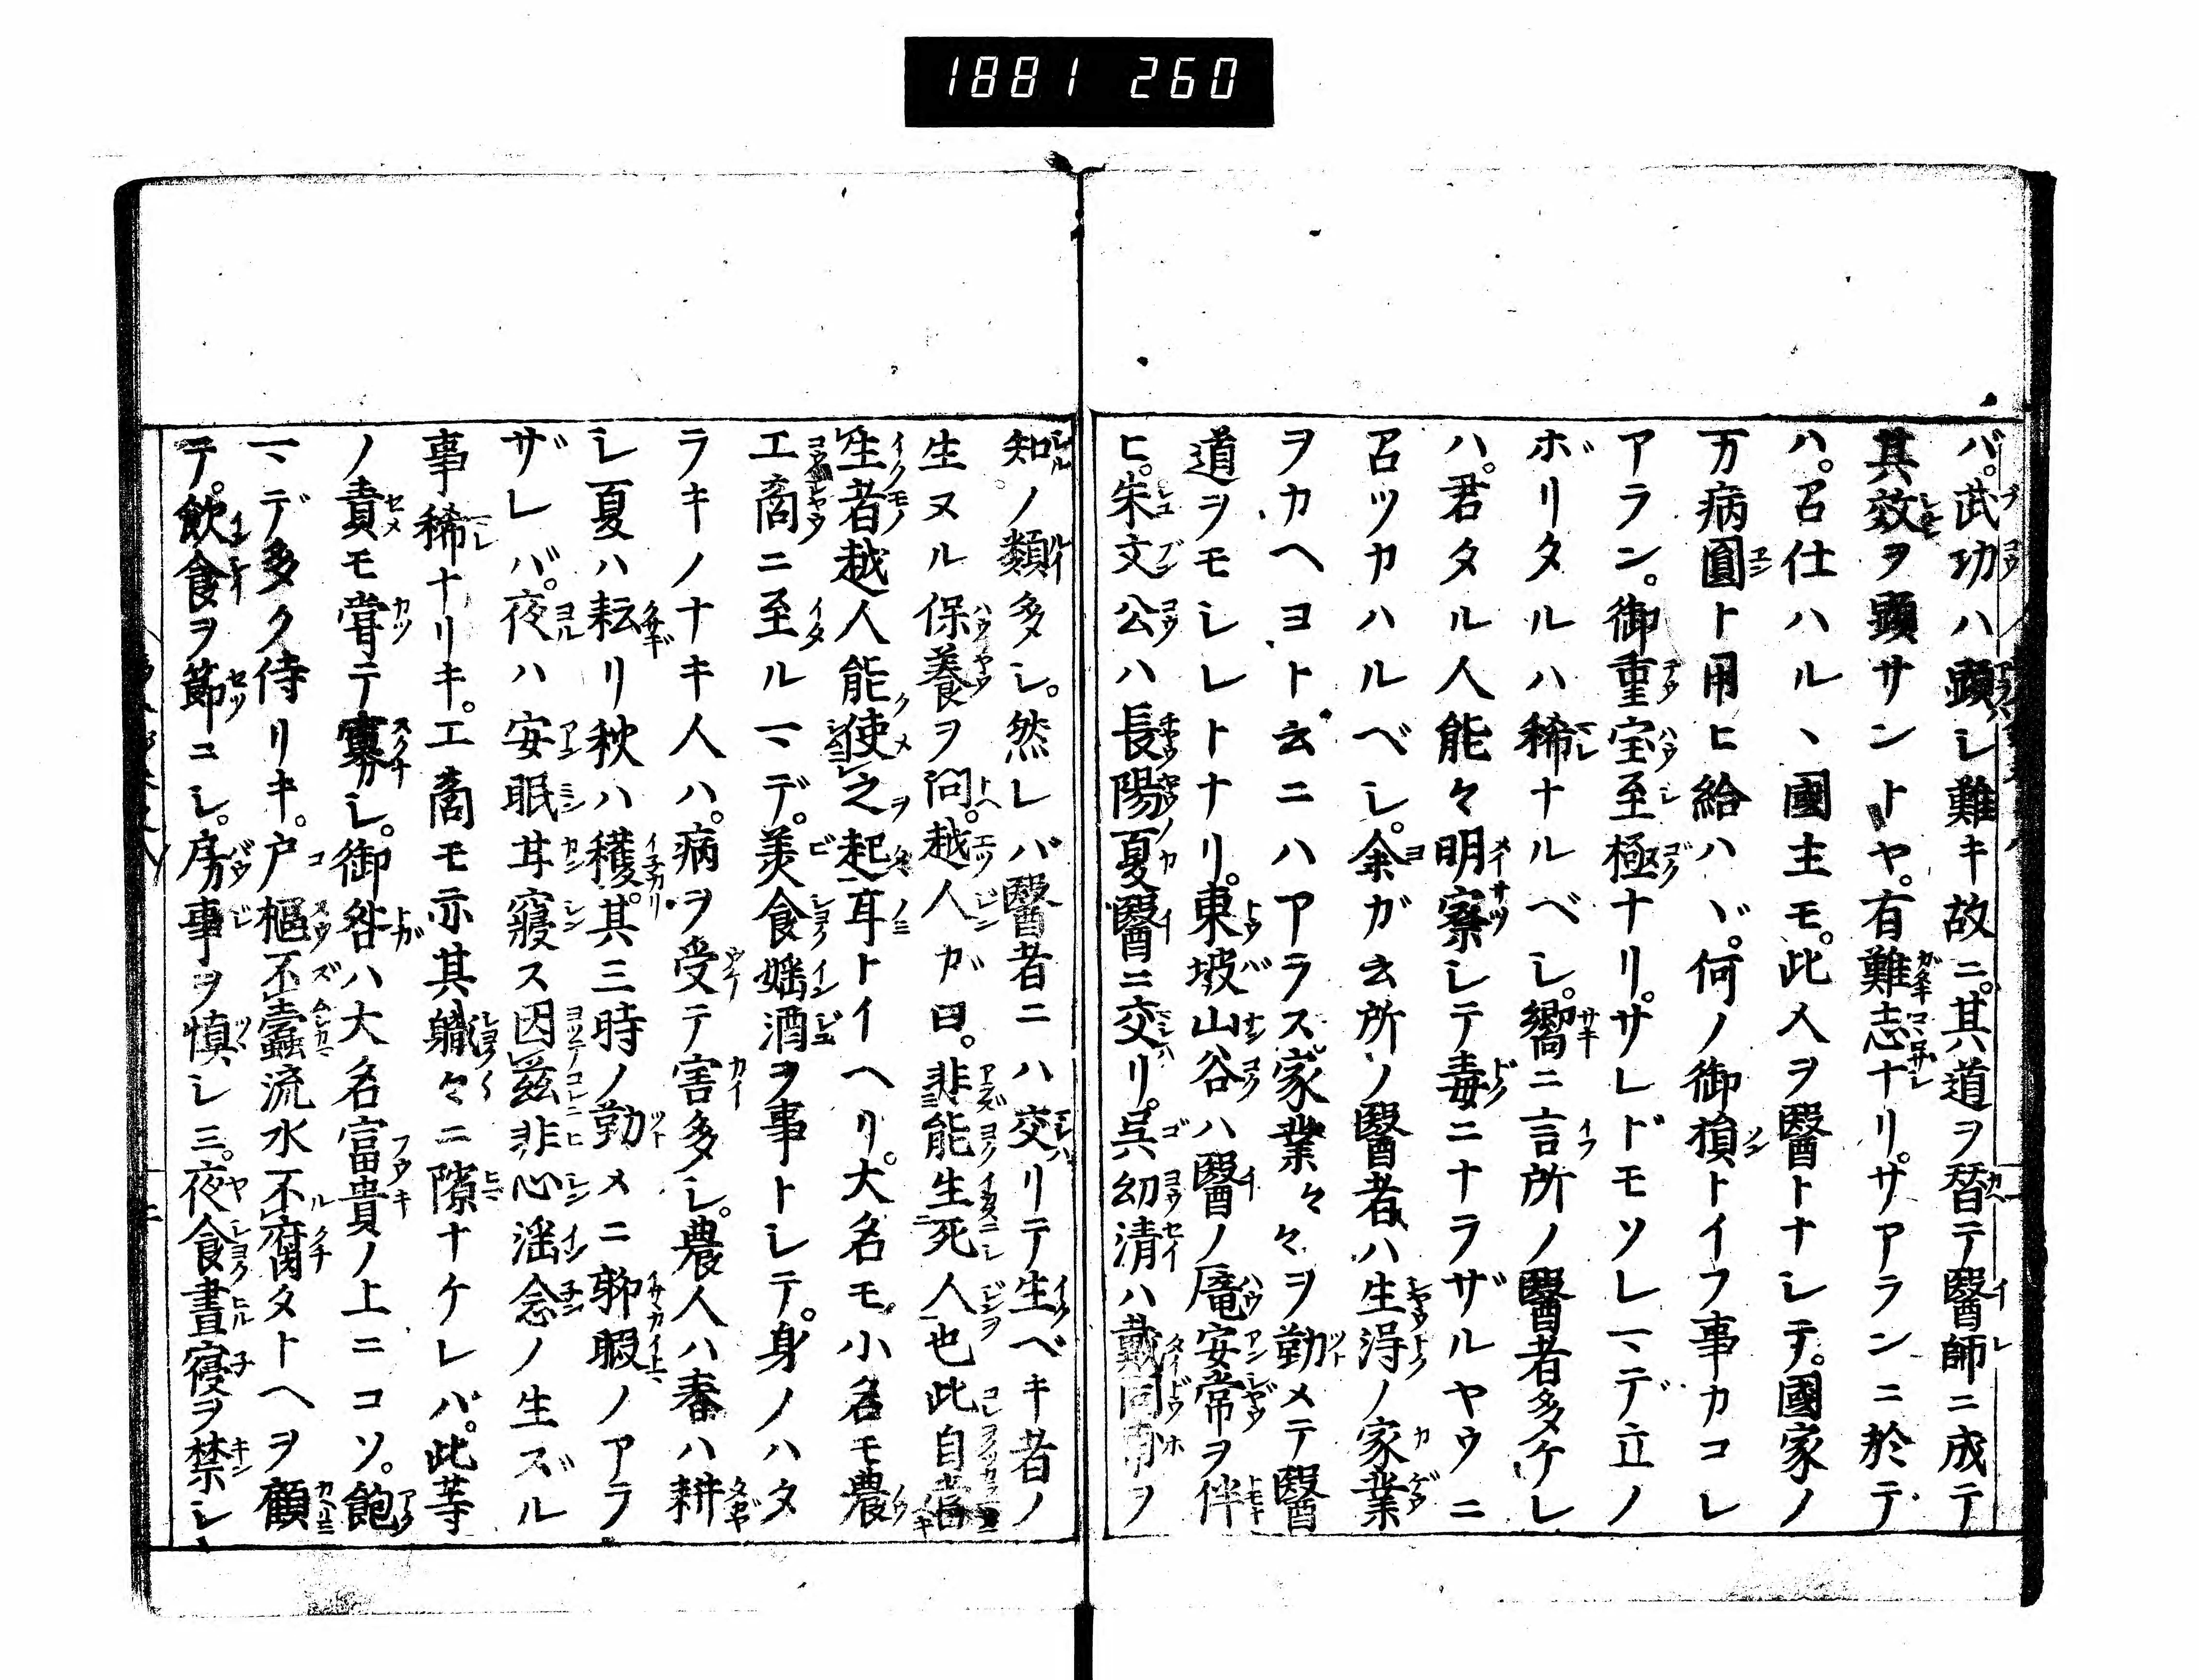 1881 260
バ。武功ハ顕シ難キ故ニ。其道ヲ替テ醫師ニ成テ
其效ヲ顕サントヤ。有難志ナリ。サアランニ於テ
ハ。召仕ハル丶國主モ。此人ヲ醫トナシテ。國家ノ
万病圓ト用ヒ給ハヾ。何ノ御損トイフ事カコレ
アラン。御重宝至極ナリ。サレドモソレマデ立ノ
ボリタルハ稀ナルベシ。嚮ニ言所ノ醫者多ケレ
ハ。君タル人能々明察シテ毒ニナラザルヤウニ
召ツカハルベシ。余ガ云所ノ醫者ハ生得ノ家業
ヲカヘヨト云ニハアラス家業々々ヲ勤メテ醫
道ヲモシレトナリ。東坡山谷ハ醫ノ龐安常ヲ伴
ヒ。朱文公ハ長陽夏醫ニ交リ。呉幼清ハ戴同甫ヲ
知ノ類多シ。然レバ醫者ニハ交リテ生ベキ者ノ
生ヌル保養ヲ問。越人ガ曰。非能生死人也此自當
生者越人能使之起耳トイヘリ。大名モ小名モ農
工商ニ至ルマデ。美食婬酒ヲ事トシテ。身ノハタ
ラキノナキ人ハ。病ヲ受テ害多シ。農人ハ春ハ耕
シ夏ハ耘リ秋ハ穫。其三時ノ勤メニ聊暇ノアラ
ザレバ。夜ハ安眠甘寢ス因茲非心淫念ノ生ズル
事稀ナリキ。工商モ亦其職々ニ隙ナケレバ。此等
ノ責モ嘗テ寡カシ。御咎ハ大名富貴ノ上ニコソ。飽
マデ多ク侍リキ。戸樞不蠹流水不腐タトヘヲ顧
テ。飲食ヲ節ニシ。房事ヲ慎シミ。夜食晝寝ヲ禁シ